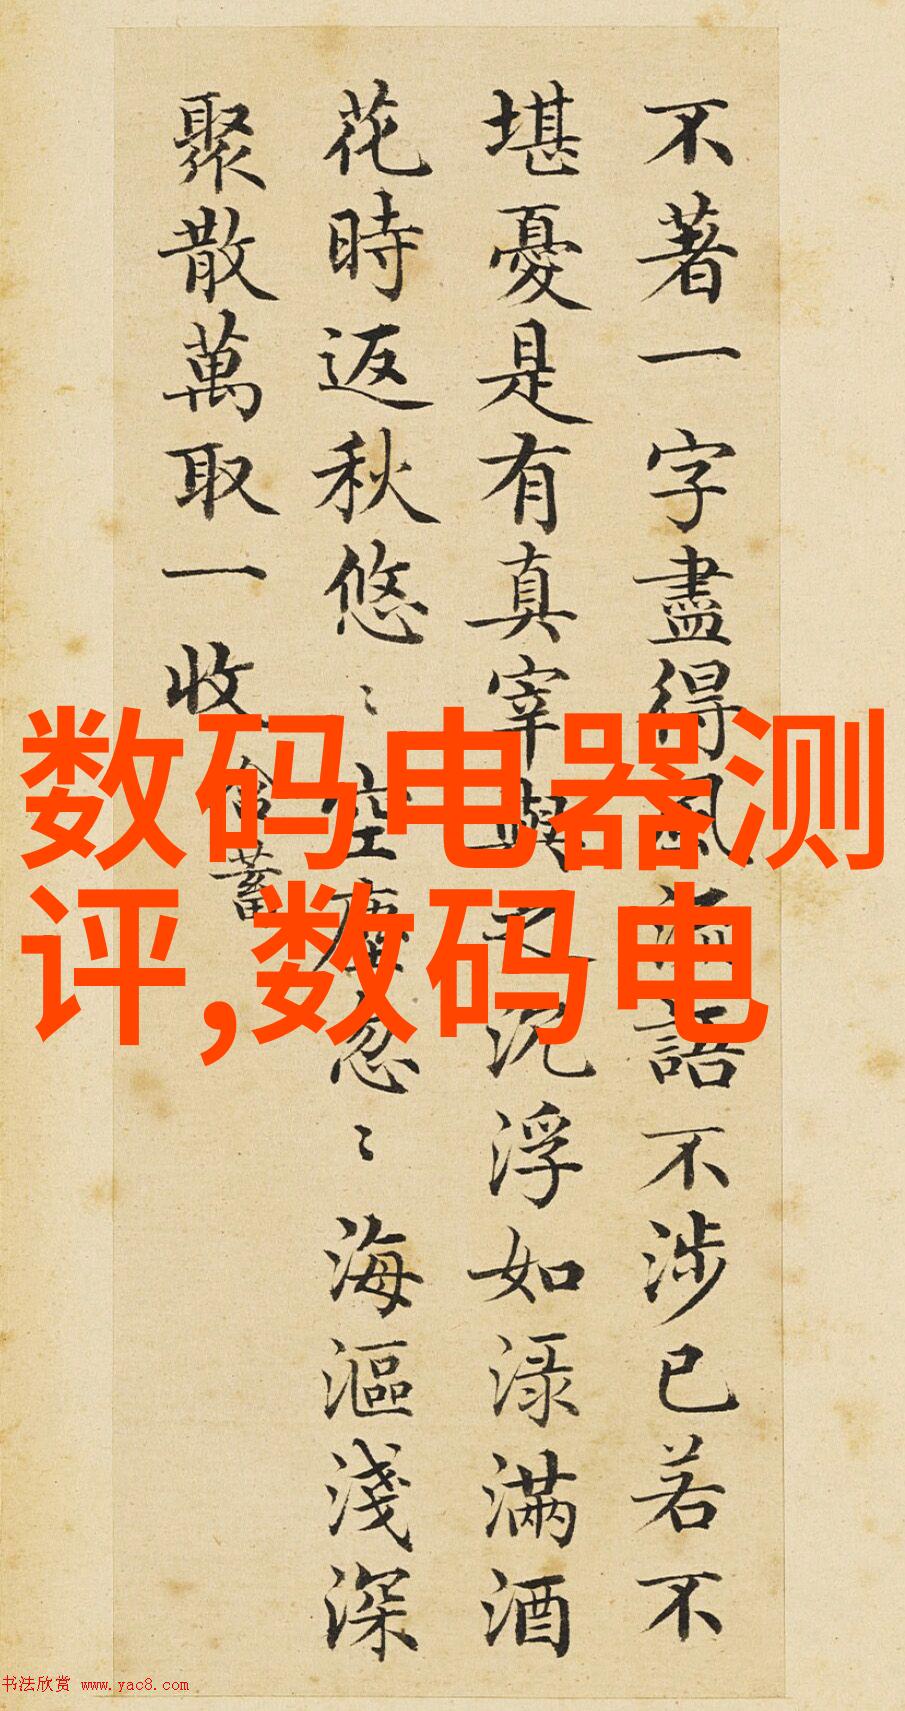 不著一字盡得風流語不涉已若不
堪憂是有真宰與之沉浮如淥滿酒
花時返秋悠〻空塵忽〻海漚淺深
聚散萬取一收
含蓄
数码电器测
评,数码电
书法欣赏 www.yac8.com